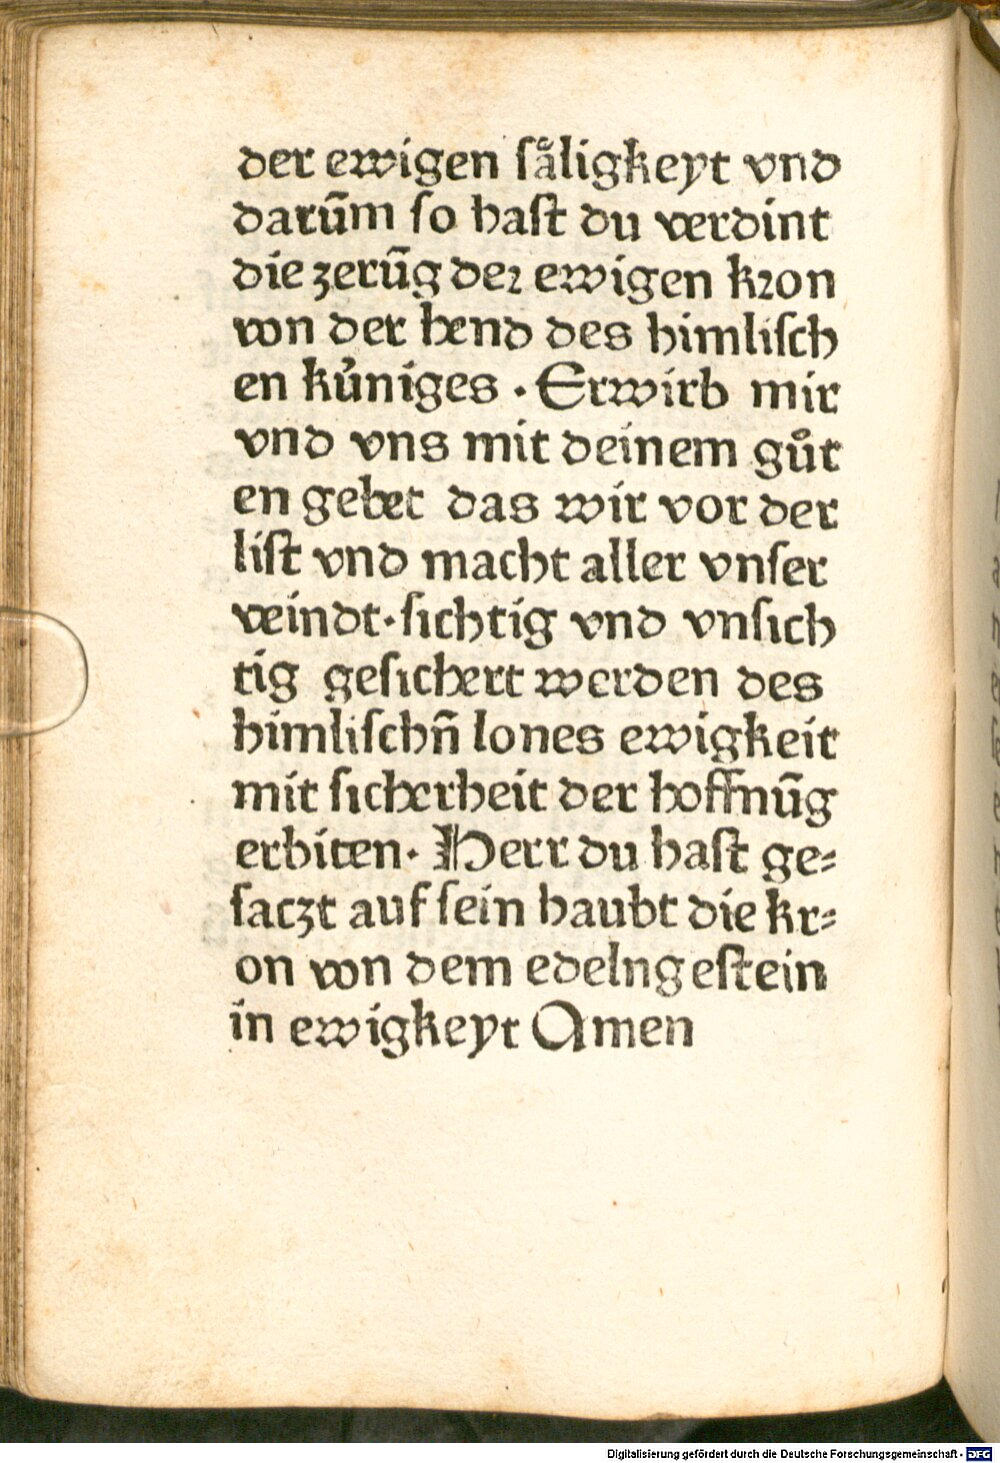 der ewigen ſaͤligkeyt vnd
darūm ſo haſt du verdint
die zerūg deꝛ ewigen kꝛon
von der hend des himliſch
en kuͤniges · Erwirb mir
vnd vns mit deinem guͦt
en gebet das wir vor der
liſt vnd macht aller vnſer
veindt · ſichtig vnd vnſich
tig geſichert werden des
himliſchn̄ lones ewigkeit
mit ſicherheit der hoffnūg
erbiten · Herr du haſt ge⸗
ſaczt auf ſein haubt die kr⸗
on von dem edelngeſtein
in ewigkeyt Amen
Digitalisierung gefördert durch die Deutsche Forschungsgemeinschaft - DFG